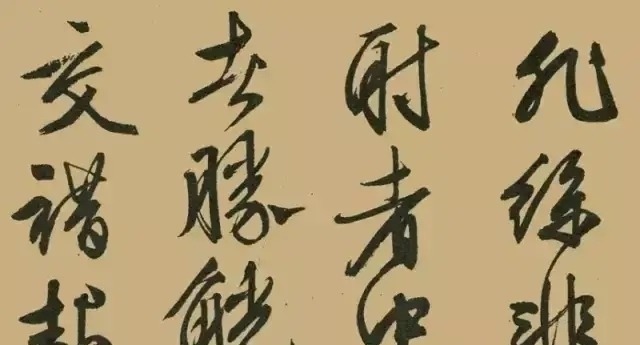 非絲非
射者中
者勝觥
交錯起